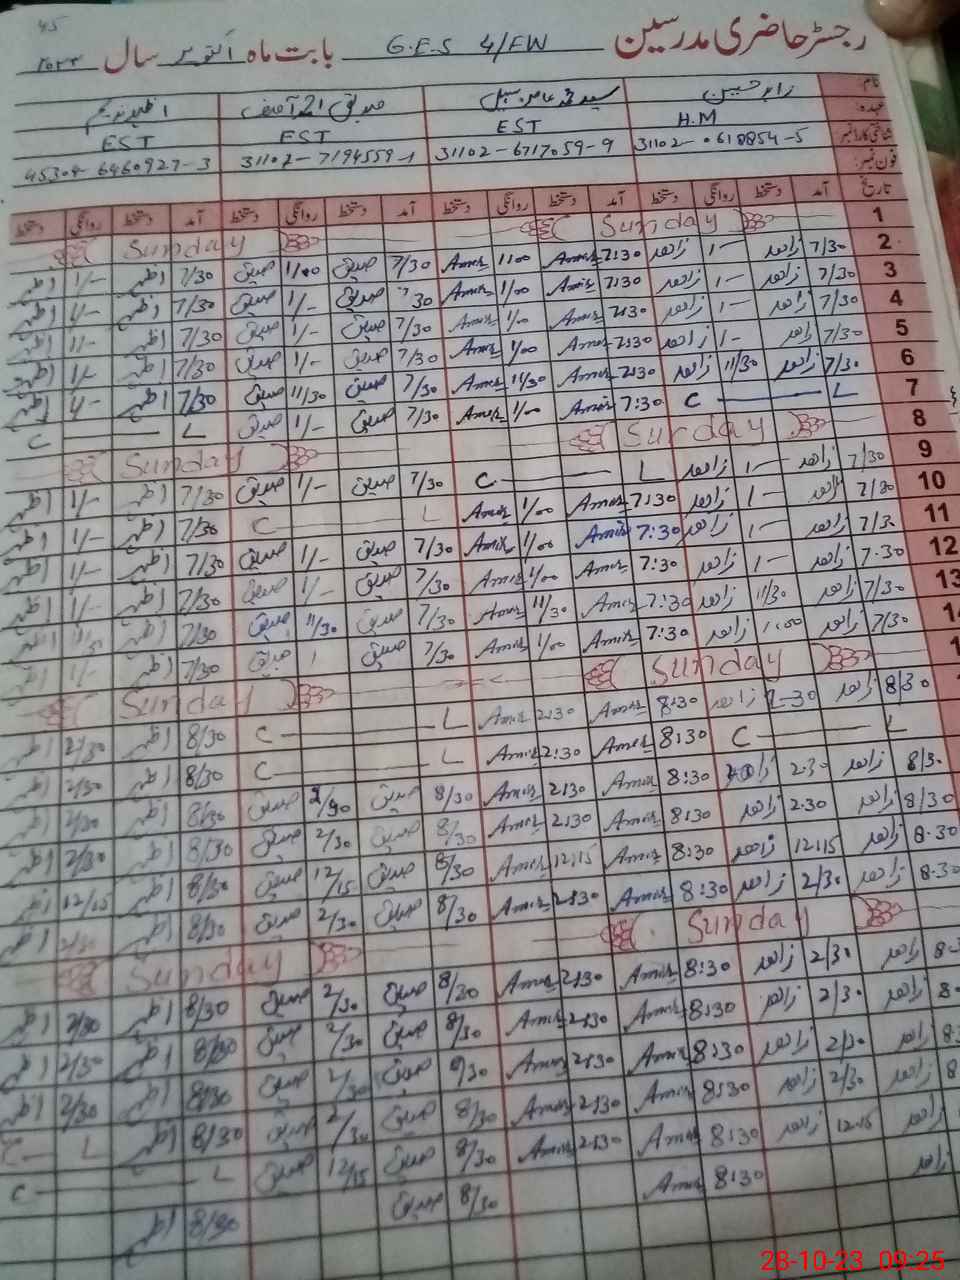 45
رجسٹر حاضری مدرسین G.E.S 4/FW بابت ماہ اکتوبر سال ۲۰۲۳
نام: زاہد حسین سید محمد عامر سہیل صدیق احمد آصف اظہر ندیم
عہدہ: H.M EST EST EST
شناختی کارڈ نمبر: 31102-0618854-5 31102-6717059-9 31102-7194559-1 45304-6460927-3
فون نمبر:
تاریخ آمد دستخط روانگی دستخط آمد دستخط روانگی دستخط آمد دستخط روانگی دستخط آمد دستخط روانگی دستخط
1 Sunday Sunday
2 7/30 زاھد 1— زاھد 7:30 Amir 1/00 Amir 7/30 صدیق 1/00 صدیق 7/30 اظہر 1/- اظہر
3 7/30 زاھد 1— زاھد 7:30 Amir 1/00 Amir 7/30 صدیق 1/- صدیق 7/30 اظہر 1/- اظہر
4 7/30 زاھد 1— زاھد 7:30 Amir 1/00 Amir 7/30 صدیق 1/- صدیق 7/30 اظہر 1/- اظہر
5 7/30 زاھد 1- زاھد 7:30 Amir 1/00 Amir 7/30 صدیق 1/- صدیق 7/30 اظہر 1/- اظہر
6 7/30 زاھد 11/30 زاھد 7:30 Amir 11/30 Amir 7/30 صدیق 11/30 صدیق 7/30 اظہر اظہر
7 C — L 7:30 Amir 1/00 Amir 7/30 صدیق 1/- صدیق C — L
8 Sunday Sunday
9 7/30 زاھد 1— زاھد C — L 7/30 صدیق 1/- صدیق 7/30 اظہر 1/- اظہر
10 7/30 زاھد 1— زاھد 7:30 Amir 1/00 Amir C — L 7/30 اظہر 1/- اظہر
11 7/30 زاھد 1— زاھد 7:30 Amir 1/00 Amir 7/30 صدیق 1/- صدیق 7/30 اظہر 1/- اظہر
12 7.30 زاھد 1— زاھد 7:30 Amir 1/00 Amir 7/30 صدیق 1/- صدیق 7/30 اظہر 1/- اظہر
13 7/30 زاھد 11/30 زاھد 7:30 Amir 11/30 Amir 7/30 صدیق 11/30 صدیق 7/30 اظہر 11/30 اظہر
7/30 زاھد 1:00 زاھد 7:30 Amir 1/00 Amir 7/30 صدیق 1 صدیق 7/30 اظہر 1/- اظہر
Sunday Sunday
8/30 زاھد 2-30 زاھد 8:30 Amir 2:30 Amir C — L 8/30 اظہر 2/30 اظہر
C — L 8:30 Amir 2:30 Amir C — L 8/30 اظہر 2/30 اظہر
8/30 زاھد 2.30 زاھد 8:30 Amir 2:30 Amir 8/30 صدیق 2/30 صدیق 8/30 اظہر 2/30 اظہر
8/30 زاھد 2.30 زاھد 8:30 Amir 2:30 Amir 8/30 صدیق 2/30 صدیق 8/30 اظہر 2/30 اظہر
8.30 زاھد 12:15 زاھد 8:30 Amir 12:15 Amir 8/30 صدیق 12/15 صدیق 8/30 اظہر 12/15 اظہر
8.30 زاھد 2/30 زاھد 8:30 Amir 2:30 Amir 8/30 صدیق 2/30 صدیق 8/30 اظہر 2/30 اظہر
Sunday Sunday
زاھد 2/30 زاھد 8:30 Amir 2:30 Amir 8/30 صدیق 2/30 صدیق 8/30 اظہر 2/30 اظہر
زاھد 2/30 زاھد 8:30 Amir 2:30 Amir 8/30 صدیق 2/30 صدیق 8/30 اظہر 2/30 اظہر
زاھد 2/30 زاھد 8:30 Amir 2:30 Amir 8/30 صدیق 2/30 صدیق 8/30 اظہر 2/30 اظہر
زاھد 2/30 زاھد 8:30 Amir 2:30 Amir 8/30 صدیق 2/30 صدیق 8/30 اظہر C L
زاھد 12.15 زاھد 8:30 Amir 2:30 Amir 8/30 صدیق 12/15 صدیق C — L
زاھد 8:30 Amir 8/30 صدیق 8/30 اظہر
28-10-23 09:25